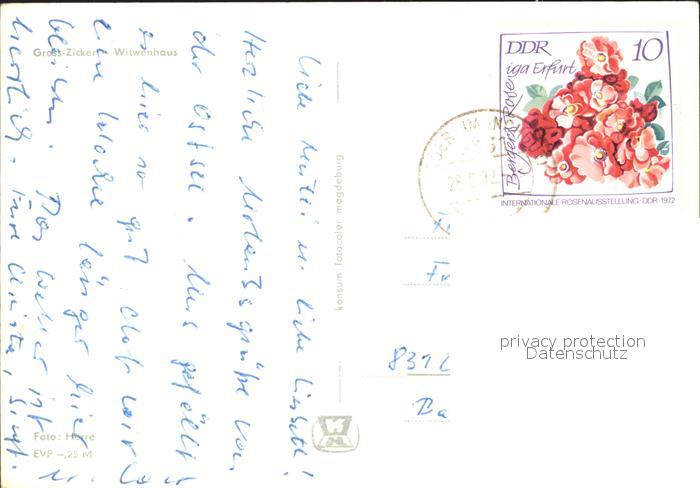 Gross-Zicker Witwenhaus
Liebe Mutti u. liebe Liesbeth!
Herzliche Urlaubsgrüße von
der Ostsee. Uns gefällt
es hier so gut, daß wir
eine Woche länger hier
bleiben. Das Wetter ist
herrlich. Eure
Foto: Herre
EVP -,25 M
konsum fotocolor magdeburg
DDR 10
iga Erfurt
INTERNATIONALE ROSENAUSSTELLUNG · DDR · 1972
8312
Ba
privacy protection
Datenschutz